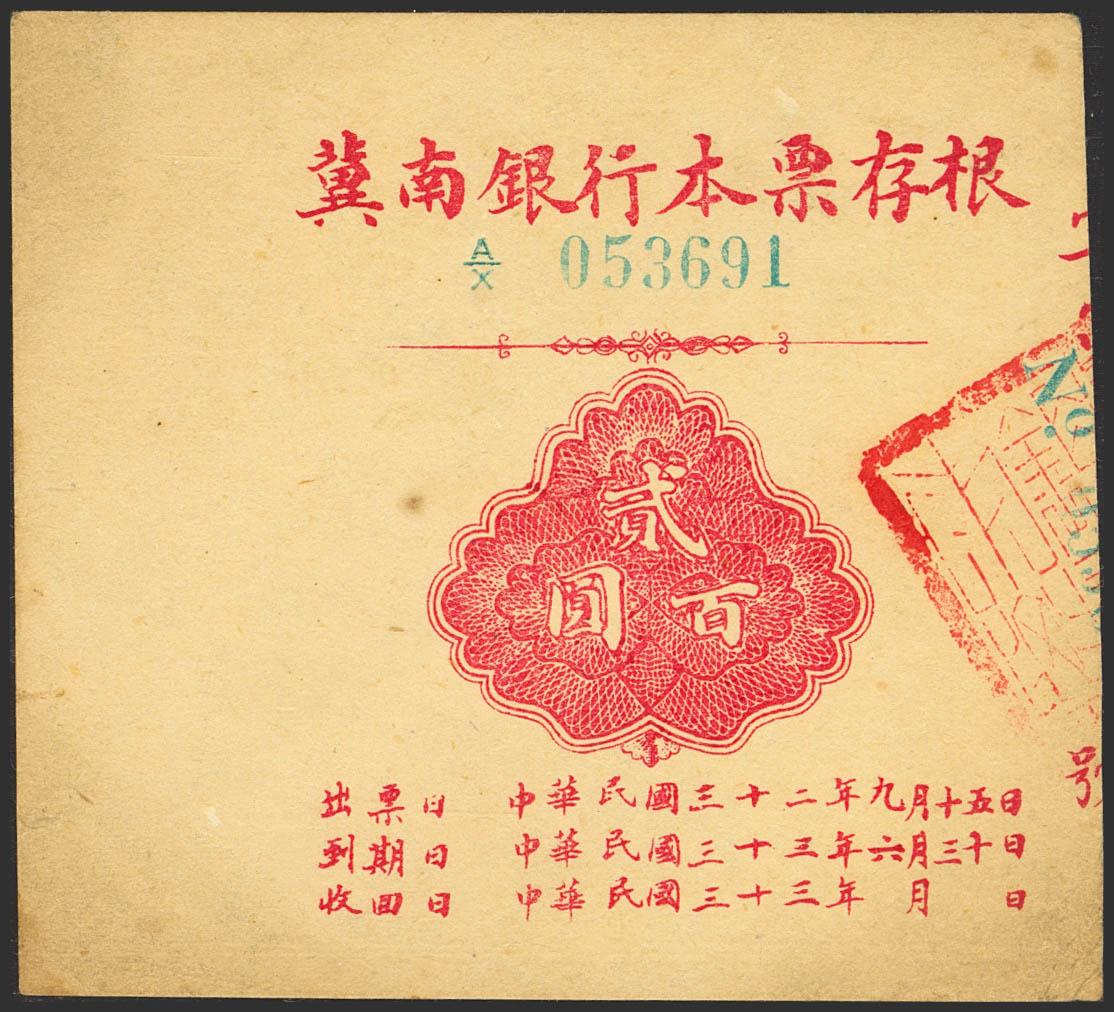 冀南銀行本票存根
A/X 053691
貳
百
圓
No.
出票日 中華民國三十二年九月十五日
到期日 中華民國三十三年六月三十日
收回日 中華民國三十三年 月 日